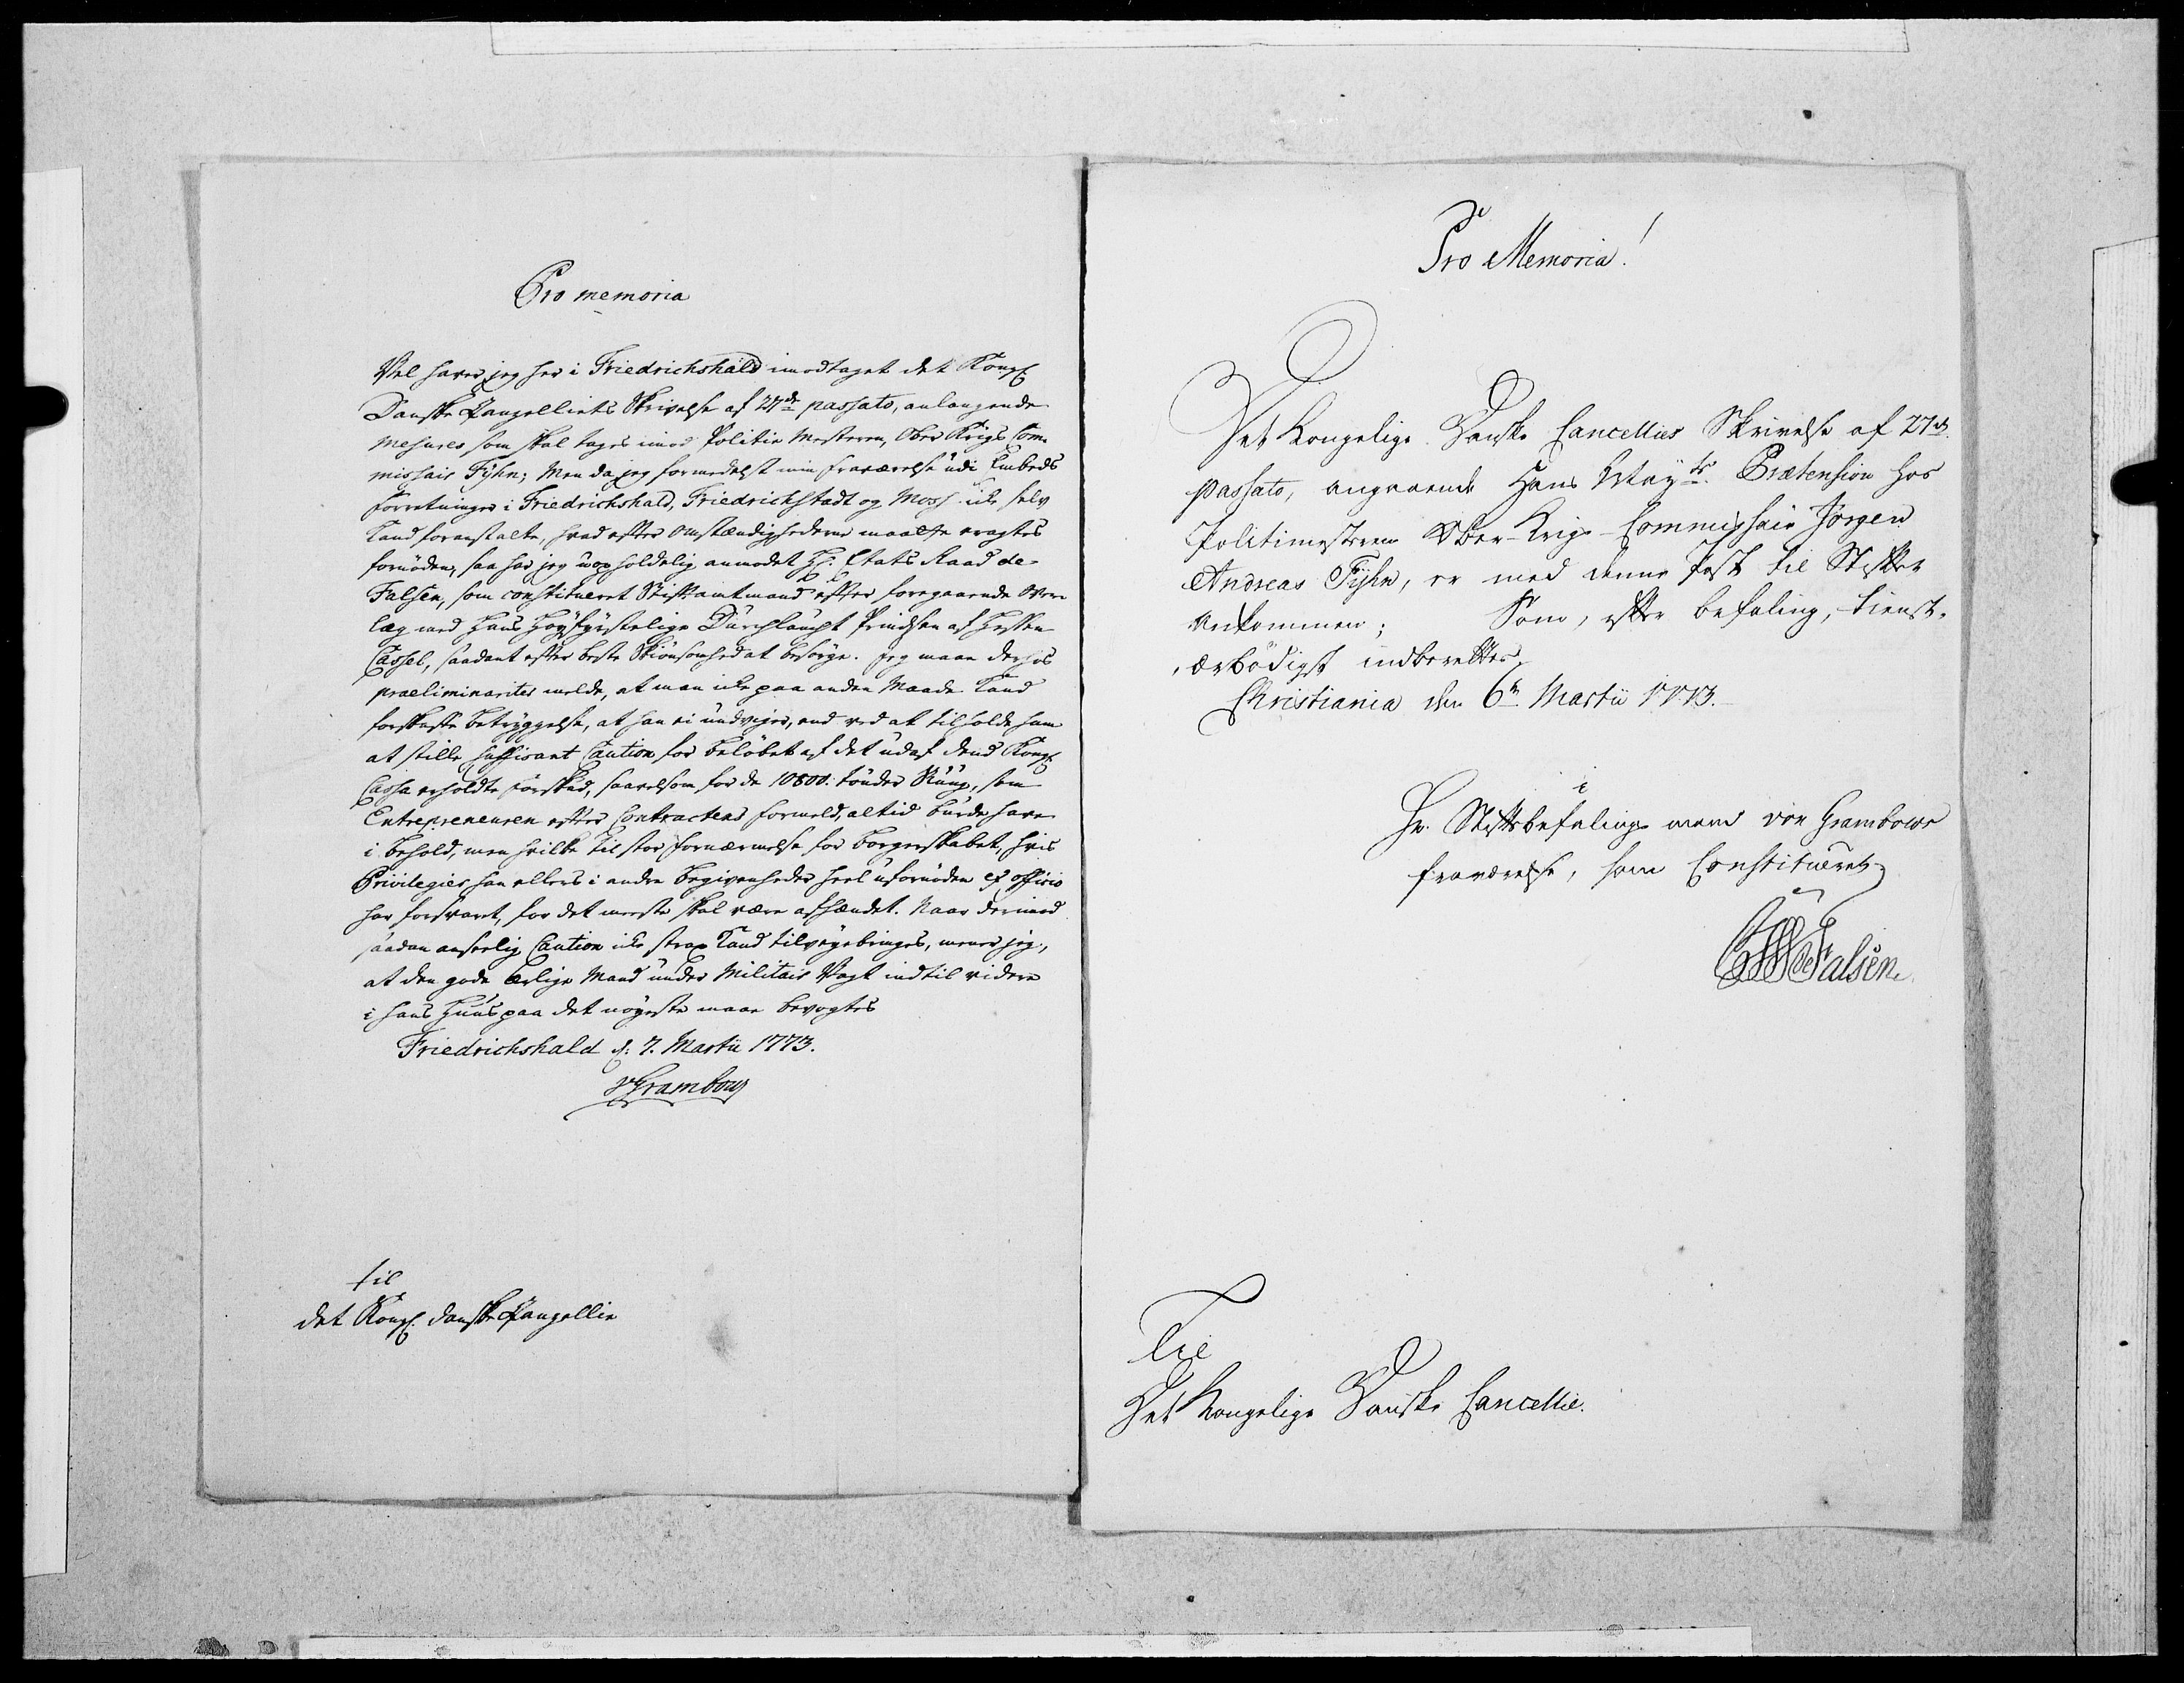 Pro memoria
Vel haver jeg her i Friedrichshald imodtaget det Kongl:
Danske Cancelliets Skrivelse af 27de passato, anlangende
mesures som skal tages imod Politie Mesteren, Ober Krigs Com-
missair Fÿhn; Men da jeg formedelst min fraværelse udi Embeds
Forretninger i Friedrichshald, Friedrichstadt og Moss ike selv
kand foranstalte, hvad efter Omstændighederne maatte eragtes
fornöden, saa har jeg uopholdelig anmodet Hr: Etats Raad de
Falsen, som constitueret Stiftamtmand efter foregaaende Over-
læg med Hans Höyfyrstelige Durchlaucht Prindsen af Hessen
Cassel, saadant efter beste Skiönsomhed at besörge. Jeg maae derhos
praeliminariter melde, at man ike paa anden Maade kand
forskaffe betryggelse, at han ei undviger, end ved at tilholde ham
at stille suffisant Caution for belöbet af det udaf dend Kongl:
Cassa erholdte forskud, saavelsom for de 10800. tönder Rüug, som
Entrepreneuren efter Contractens formeld, altid burde have
i behold, men hvilke til stor fornærmelse for borgerskabet, hvis
Privilegier han ellers i andre begivenheder heel ufornöden ex officio
har forsvaret, for det meeste skal være afhændet. Naar derimod
saadan anseelig Caution ike strax kand tilveyebringes, mener jeg,
at den gode ærlige Mand under Militair Vagt indtil videre
i hans Huus paa det nöyeste maae bevogtes
Friedrichshald d: 7. Martii 1773.
v Grambow
til
det Kongl: danske Cancellie
Pro Memoria!
Det Kongelige Danske Cancellies Skrivelse af 27de
passato, angaaende Hans Mayts. Prætension hos
Politimesteren Ober-Krigs-Commissair Jörgen
Andreas Fÿhn, er med denne Post til Stiftet
ankommen; Som, efter befaling, tienst-
ærbödigst indberettes
Christiania den 6te Martii 1773.
i
Hr. Stiftsbefalings mand von Grambows
fraværelse, som Constitueret
de Falsen.
Til
Det Kongelige Danske Cancellie.